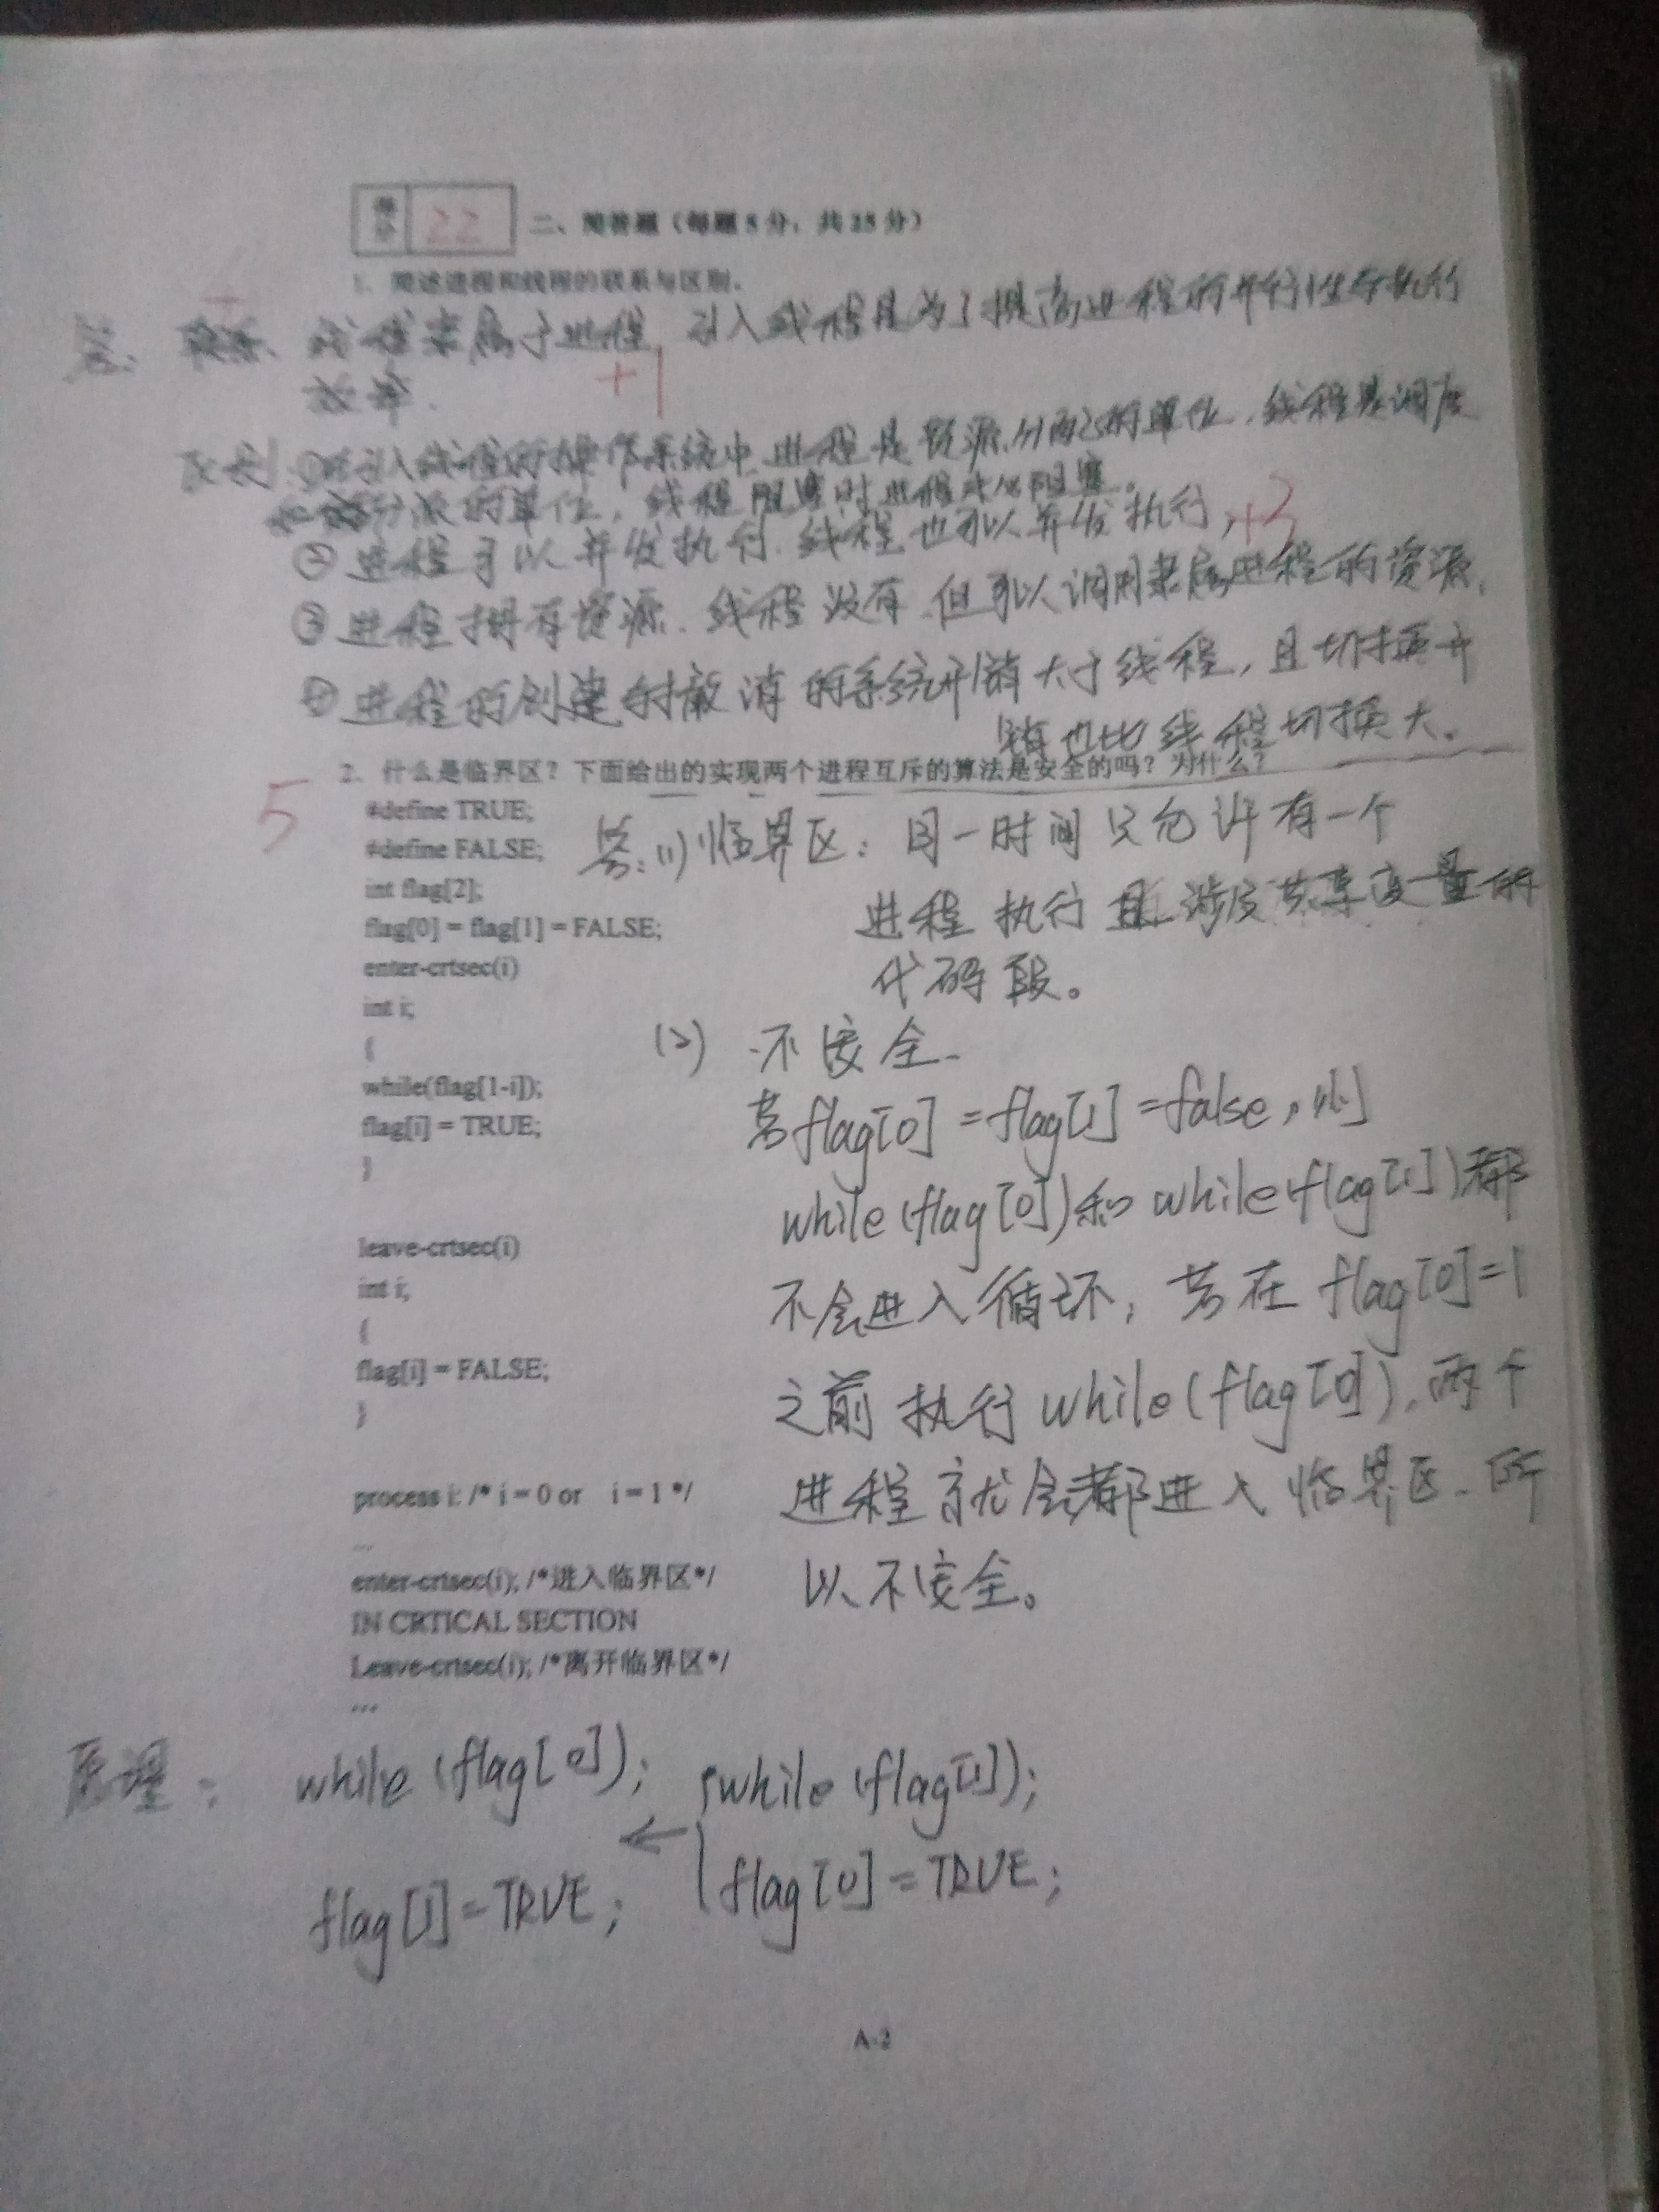 得分 22 二、简答题（每题5分，共25分）
1、简述进程和线程的联系与区别。
答：联系：线程隶属于进程，引入线程是为了提高进程的并行性与执行
效率.
+1
区别：①在引入线程的操作系统中，进程是资源分配的单位，线程是调度
和分派的单位，线程阻塞时进程不必阻塞。
②进程可以并发执行，线程也可以并发执行， +3
③进程拥有资源，线程没有，但可以调用隶属进程的资源，
④进程的创建与撤消的系统开销大于线程，且切换开
销也比线程切换大。
5 2、什么是临界区？下面给出的实现两个进程互斥的算法是安全的吗？为什么？
#define TRUE;
#define FALSE;
int flag[2];
flag[0] = flag[1] = FALSE;
enter-crtsec(i)
int i;
{
while(flag[1-i]);
flag[i] = TRUE;
}
leave-crtsec(i)
int i;
{
flag[i] = FALSE;
}
process i: /* i = 0 or i = 1 */
...
enter-crtsec(i); /*进入临界区*/
IN CRTICAL SECTION
Leave-crtsec(i); /*离开临界区*/
...
答：(1) 临界区：同一时间只允许有一个
进程执行且涉及共享变量的
代码段。
(2) 不安全.
若flag[0]=flag[1]=false，则
while(flag[0])和while(flag[1])都
不会进入循环，若在flag[0]=1
之前执行while(flag[0])，两个
进程就会都进入临界区，所
以不安全。
原理： while(flag[0]); while(flag[1]);
←
flag[1]=TRUE; flag[0]=TRUE;
A-2